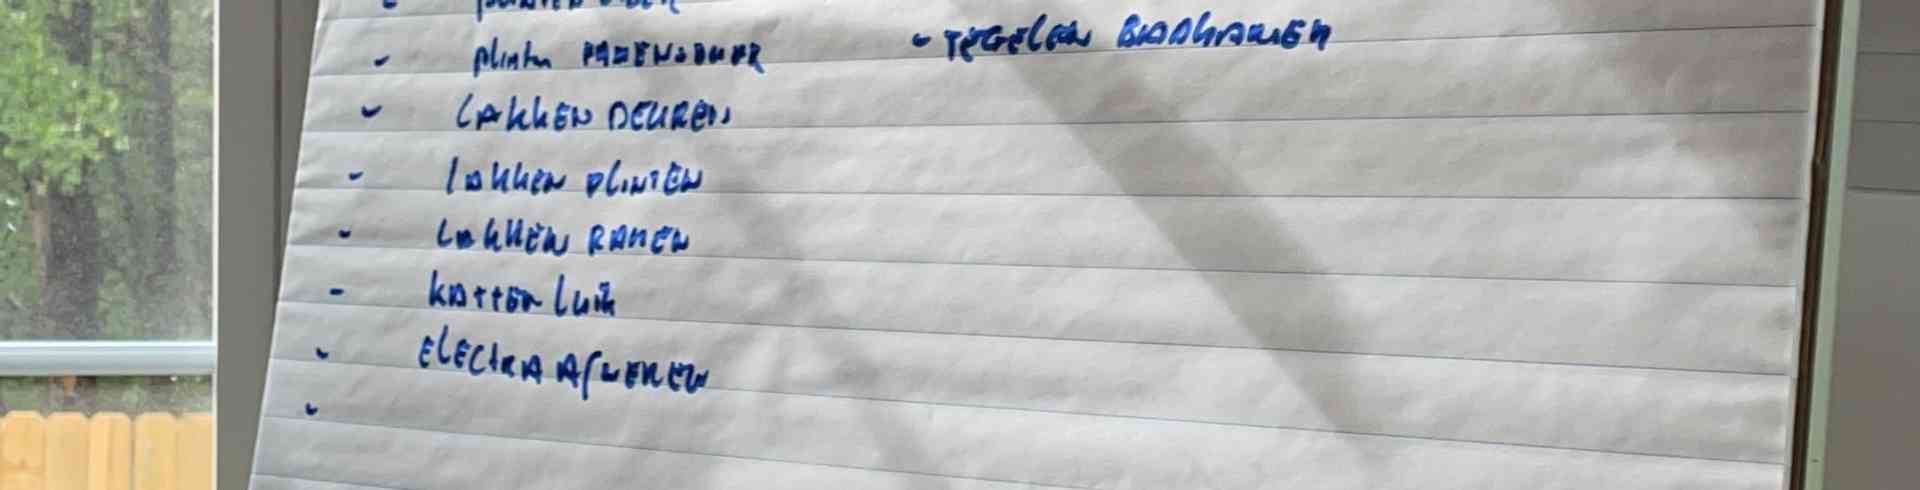 - plinten
- LAKKEN DEUREN
- lakken plinten
- LAKKEN RAMEN
- katten luik
- ELECTRA AFWERKEN
-
- TEGELEN BADKAMER